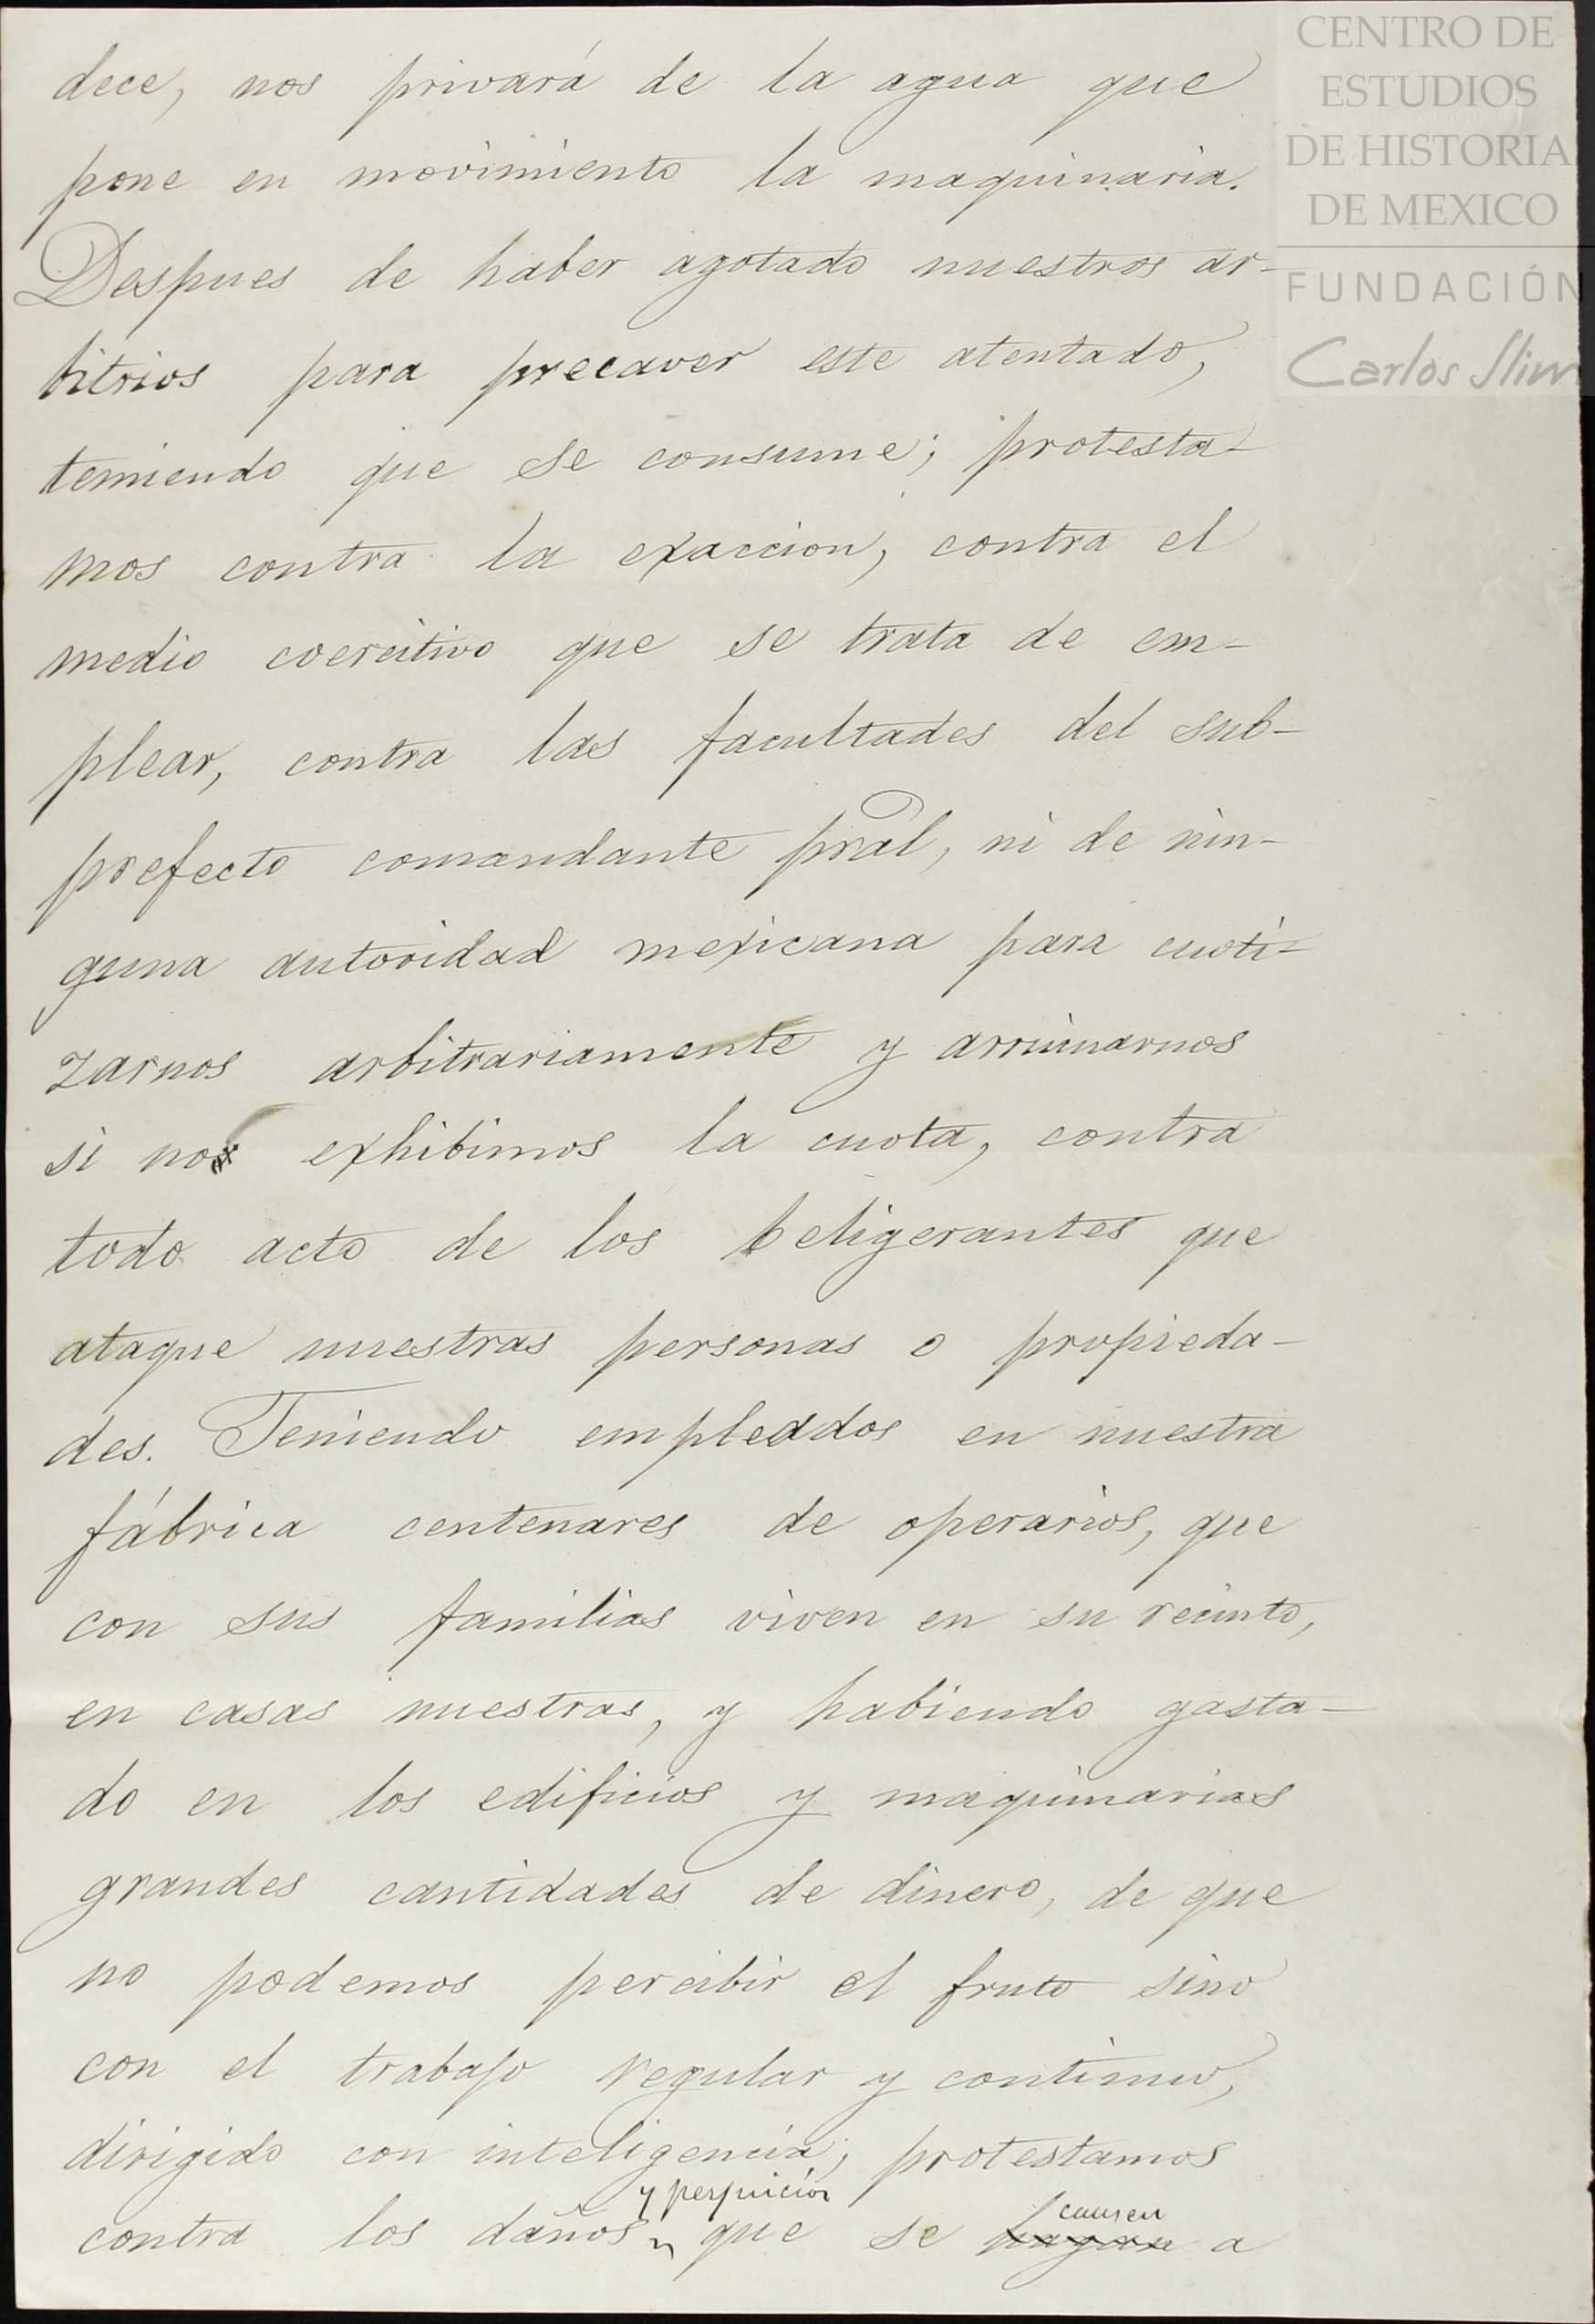 CENTRO DE
ESTUDIOS
DE HISTORIA
DE MEXICO
FUNDACIÓN
Carlos Slim
dece, nos privará de la agua que
pone en movimiento la maquinaria.
Despues de haber agotado nuestros ar-
bitrios para precaver este atentado,
temiendo que se consume; protesta-
mos contra la exaccion, contra el
medio coercitivo que se trata de em-
plear, contra las facultades del sub-
prefecto comandante pral, ni de nin-
guna autoridad mexicana para cuoti-
zarnos arbitrariamente y arruinarnos
si no exhibimos la cuota, contra
todo acto de los beligerantes que
ataque nuestras personas o propieda-
des. Teniendo empleados en nuestra
fábrica centenares de operarios, que
con sus familias viven en su recinto,
en casas nuestras, y habiendo gasta-
do en los edificios y maquinarias
grandes cantidades de dinero, de que
no podemos percibir el fruto sino
con el trabajo regular y continuo,
dirigido con inteligencia; protestamos
y perjuicios causen
contra los daños que se hagan a